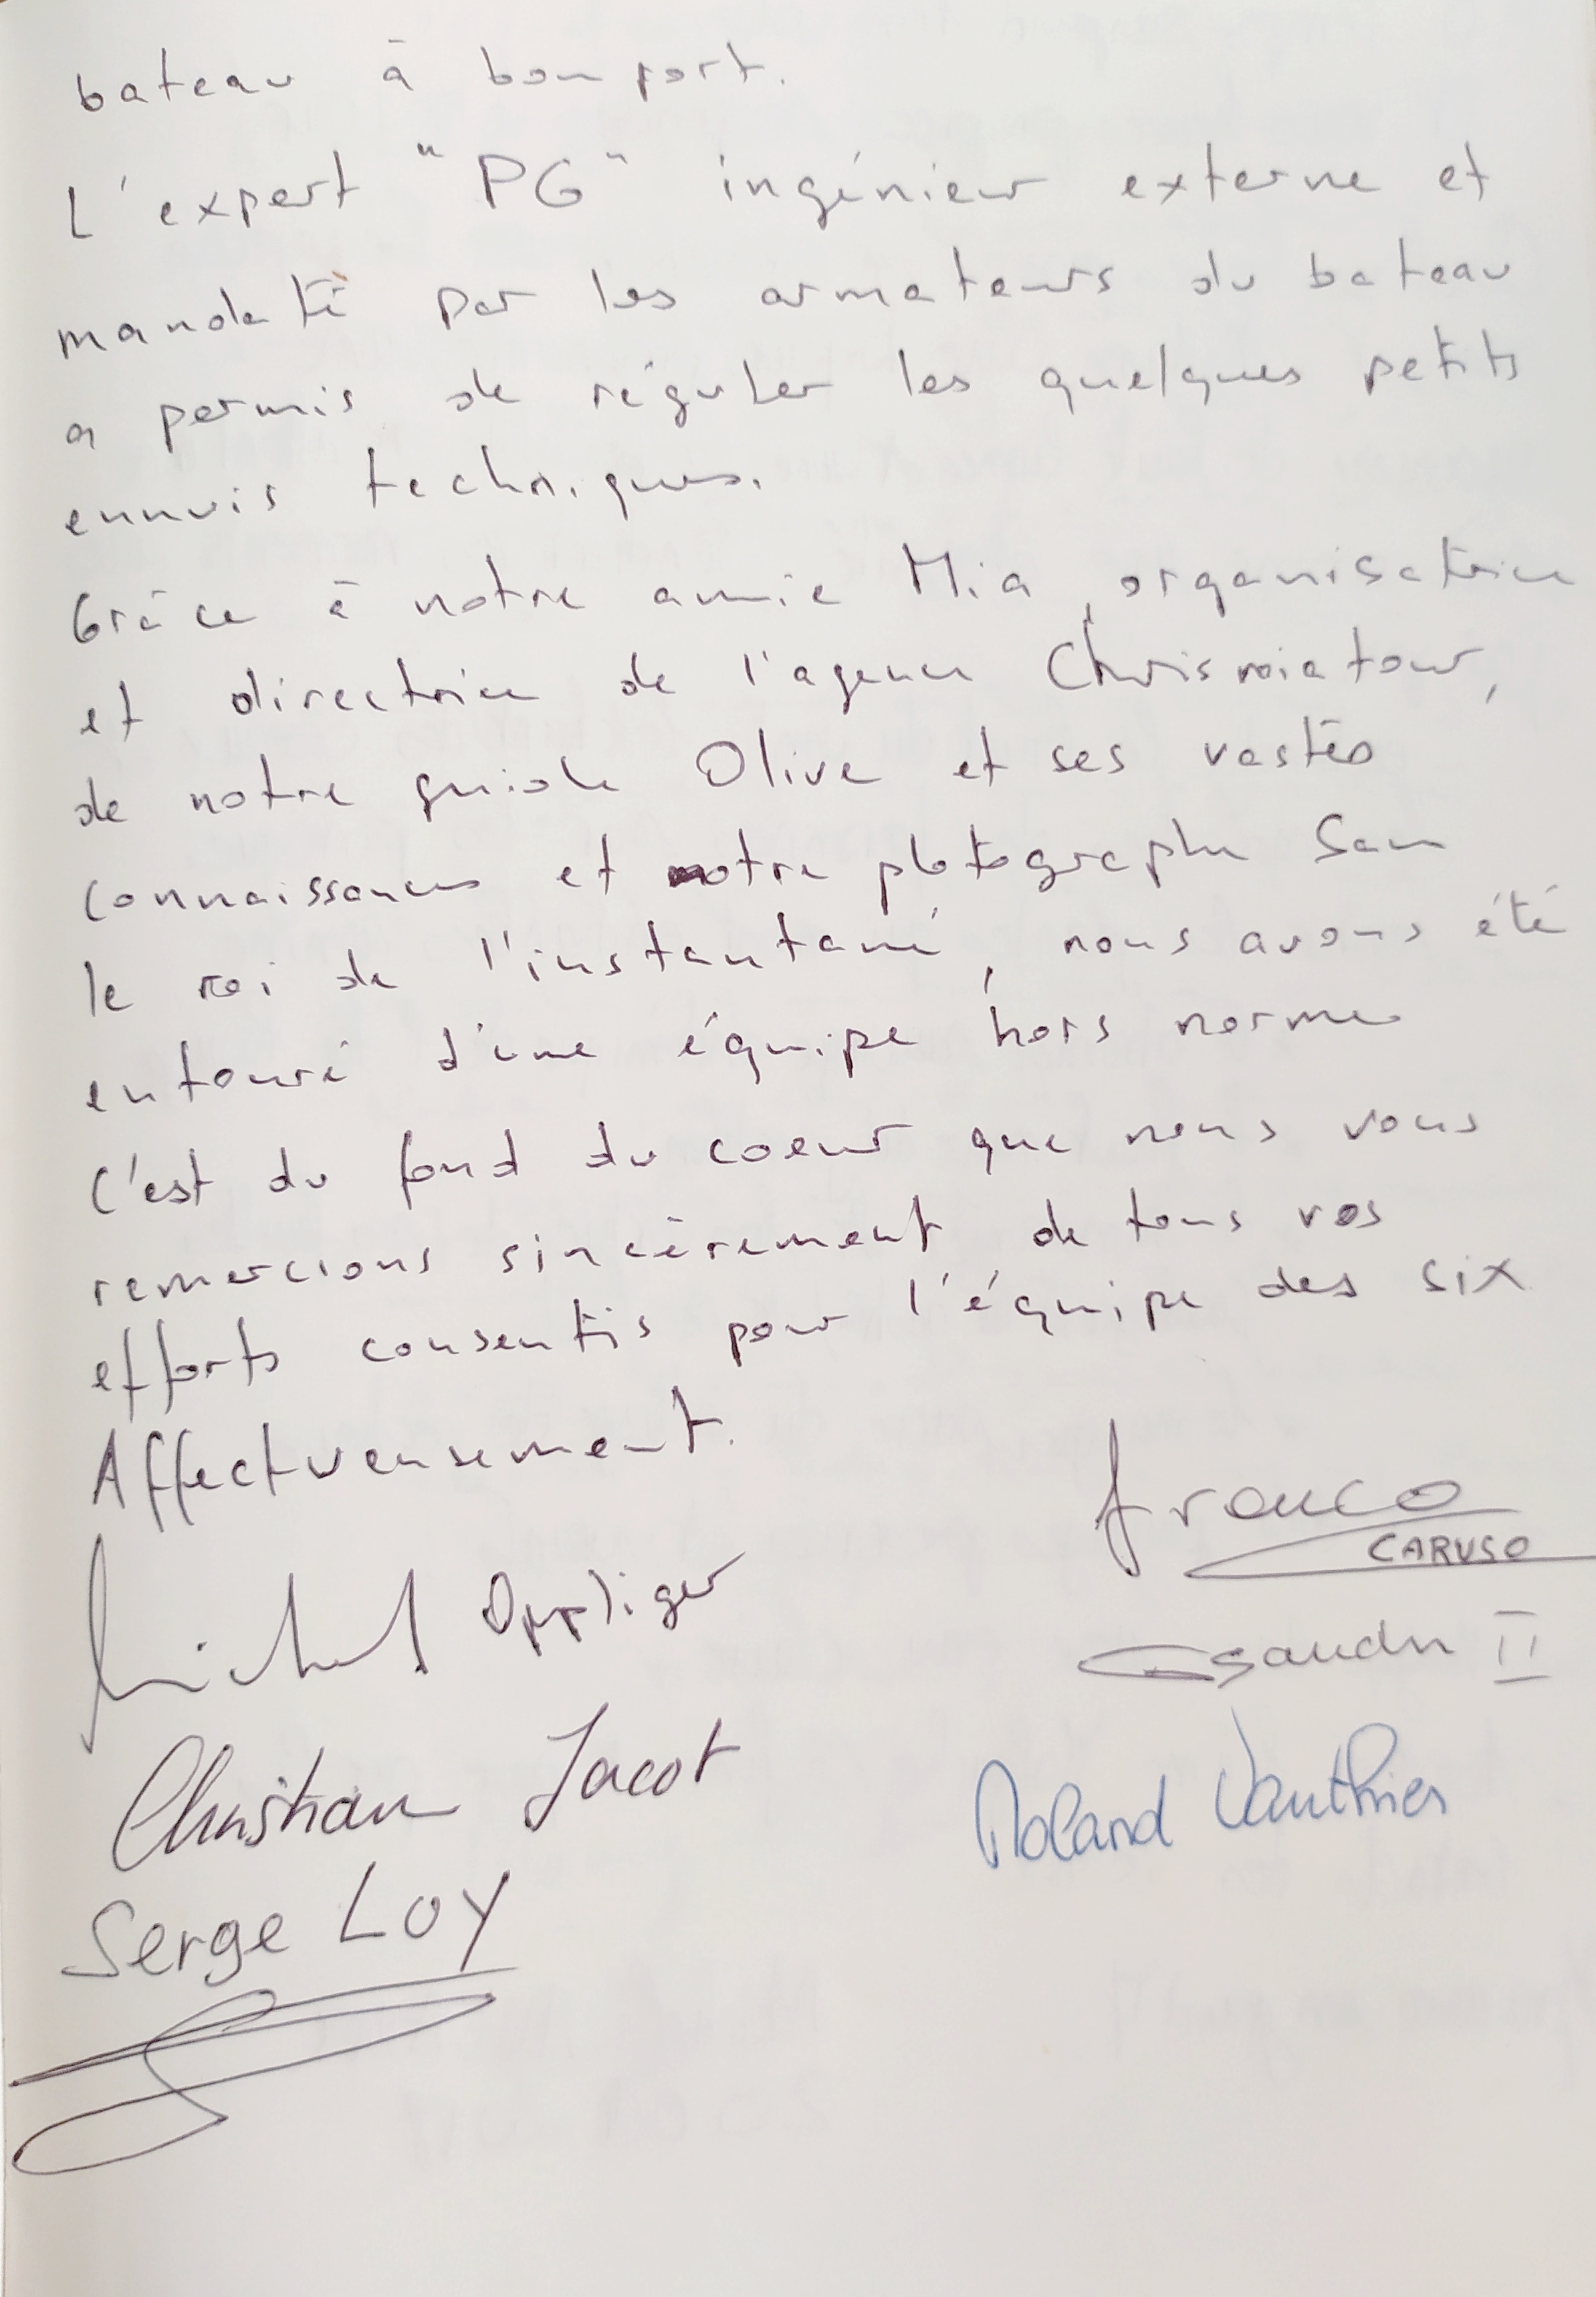 bateau à bon port.
L'expert "PG" ingénieur externe et
mandaté par les armateurs du bateau
a permis de réguler les quelques petits
ennuis techniques.
Grâce à notre amie Mia, organisatrice
et directrice de l'agence Chrismiatour,
de notre guide Olive et ses vastes
connaissances et notre photographe Sam
le roi de l'instantané, nous avons été
entouré d'une équipe hors normes
C'est du fond du coeur que nous vous
remercions sincèrement de tous vos
efforts consentis pour l'équipe des six
Affectueusement.
Franco
CARUSO
Michel Oppliger
Sandro II
Christian Jacot
Roland Vauthier
Serge LOY